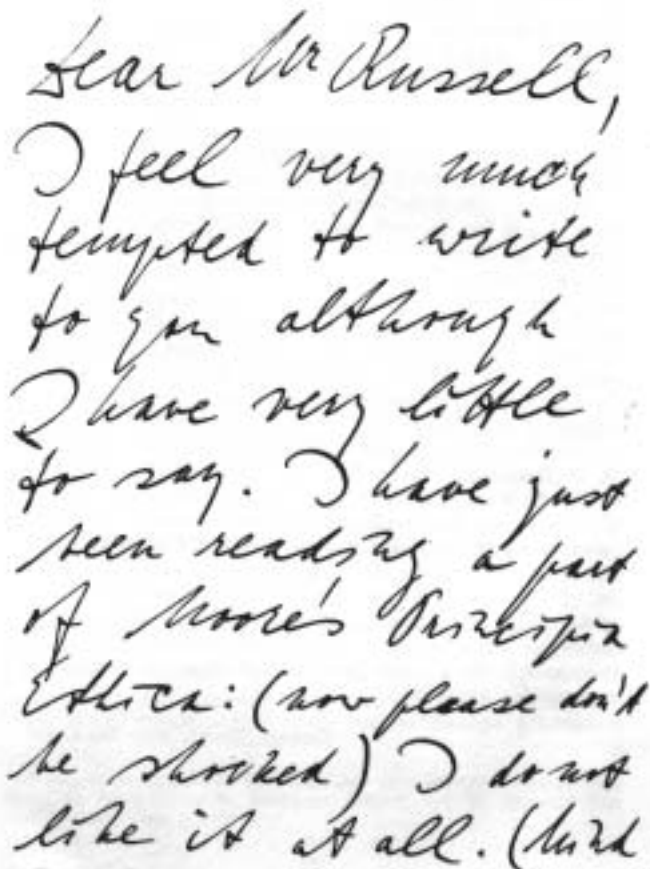 Dear Mr Russell,
I feel very much
tempted to write
to you although
I have very little
to say. I have just
been reading a part
of Moore's Principia
Ethica: (now please don't
be shocked) I do not
like it at all. (Mind